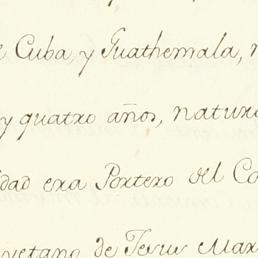 e Cuba, y Guathemala, n
y quatro años, natura
idad era Portero del Co
yetano de Jesus Mar